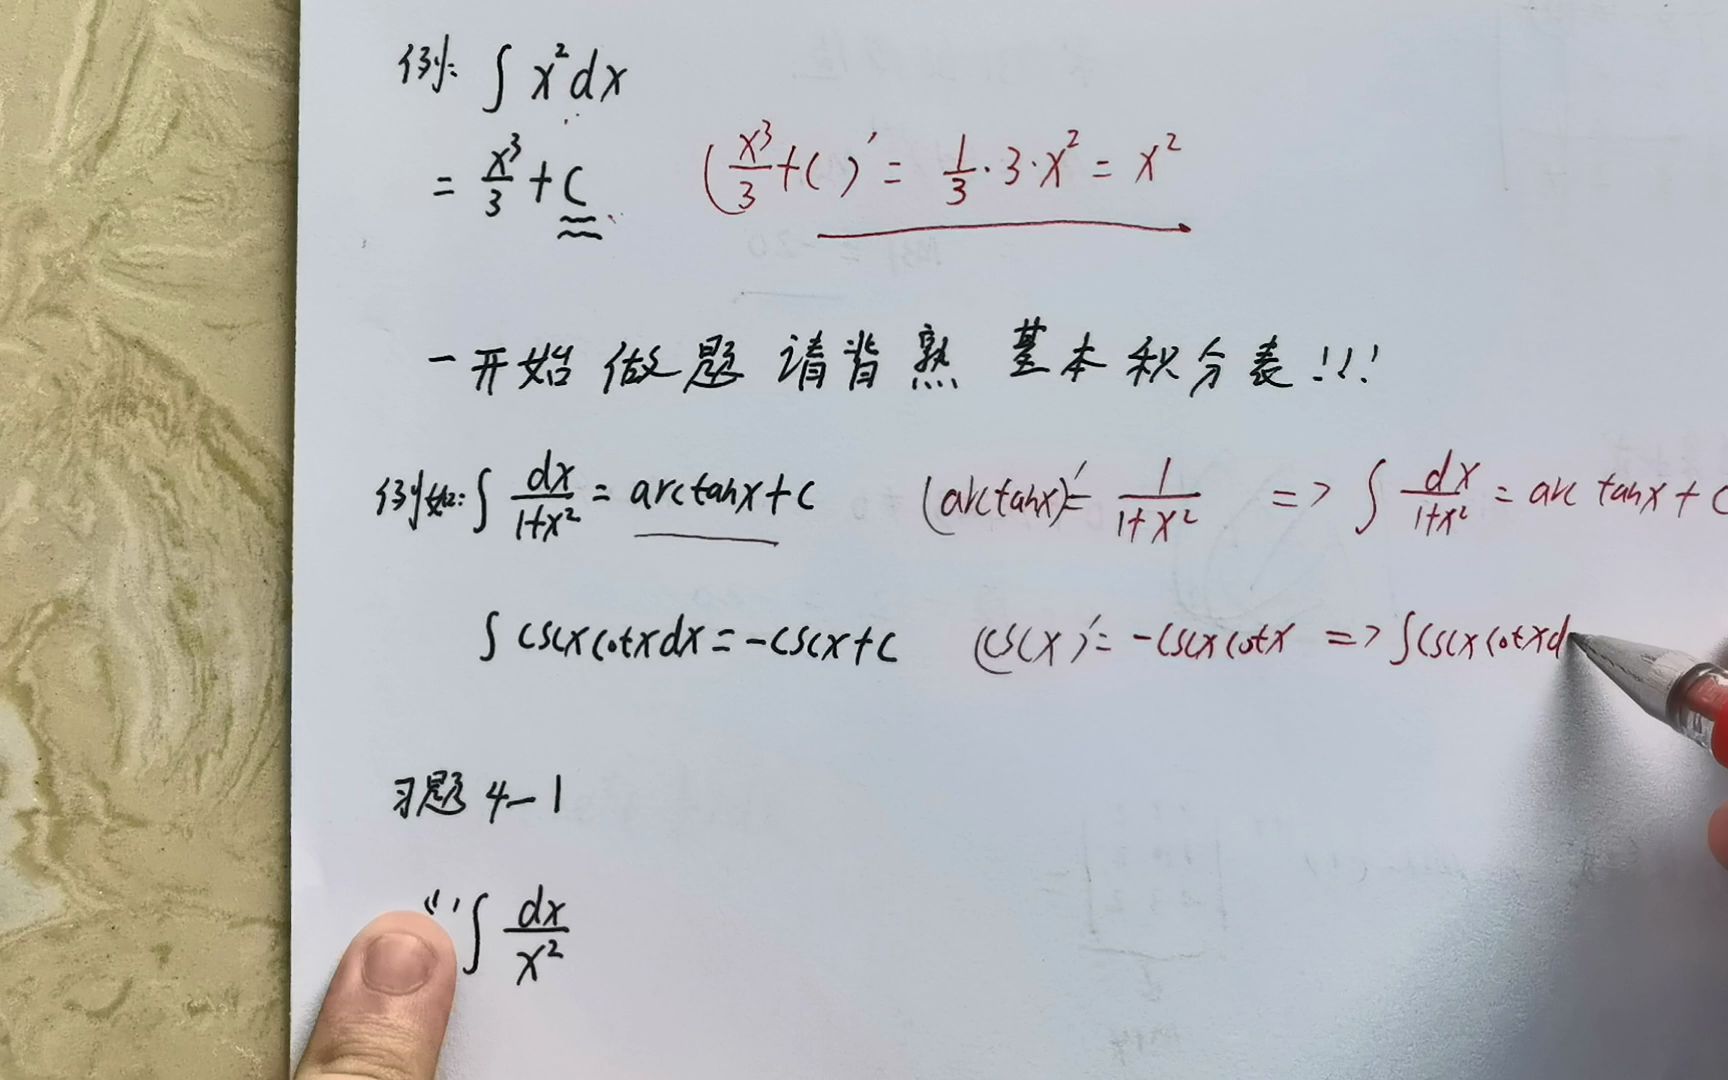 例: ∫ x² dx
= x³/3 + C (x³/3 + C)' = 1/3 · 3 · x² = x²
一开始做题 请背熟 基本积分表!!!
例如: ∫ dx/(1+x²) = arctanx + C (arctanx)' = 1/(1+x²) => ∫ dx/(1+x²) = arc tanx + C
∫ cscx cotx dx = -cscx + C (cscx)' = -cscx cotx => ∫cscx cotx d
习题 4-1
(1) ∫ dx/x²